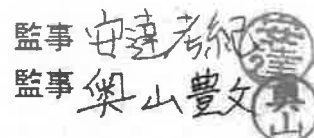 監事 安達考紀
監事 奥山豊文
奥山